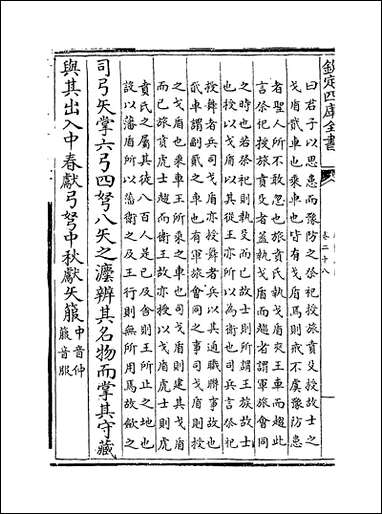 欽定四庫全書
卷二十八
曰君子以思患而豫防之祭祀授旅賁殳授故士之
戈盾貳車也乘車也皆有戈盾焉則戒不虞豫防患
者聖人所不敢忽也旅賁氏執戈盾夾王車而趨此
言祭祀授旅賁殳者蓋執戈盾而趨者謂軍旅會同
之時也若祭祀則執殳而已故士則所謂王族故士
也授以戈盾以其從王亦所以為衛也司兵言祭祀
授舞者兵司戈盾亦授舞者兵以其通職聯事故也
貳車謂副貳之車也有軍旅會同之事司戈盾則授
之戈盾也乘車王所乘之車也司戈盾則建其戈盾
而已旅賁虎士趨而衛王故亦授以戈盾虎士則虎
賁氏之屬其徒八百人是已及舍則王所止之地也
設以藩盾所以藩衛之及王行則無所用焉故斂之
司弓矢掌六弓四弩八矢之灋辨其名物而掌其守藏
與其出入中春獻弓弩中秋獻矢箙中音仲箙音服